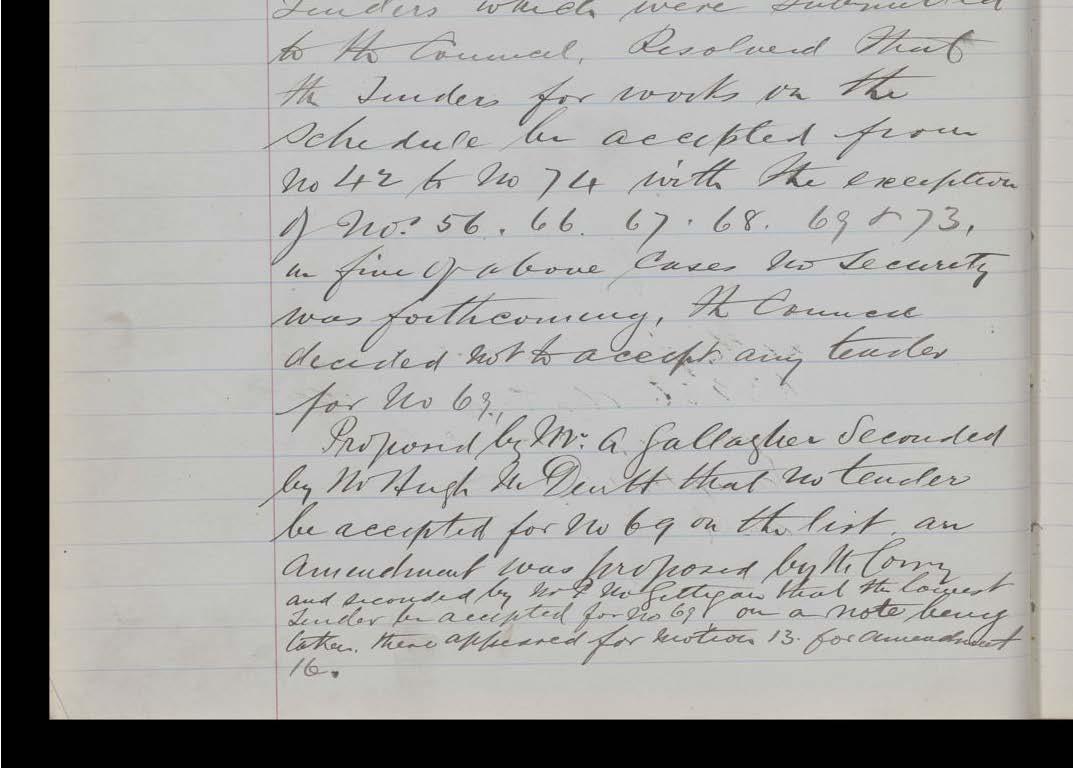 Tenders which were submitted
to the Council. Resolved that
the Tenders for works on the
Schedule be accepted from
No 42 to No 74 with the exception
of Nos. 56. 66. 67. 68. 69 & 73,
in five of above cases no security
was forthcoming, the Council
decided not to accept any tender
for No 69,
Proposed by Mr. A. Gallagher Seconded
by Mr Hugh Mc Devitt that no tender
be accepted for No 69 on the list. an
amendment was proposed by Mr Corry
and seconded by Mr P McGettigan that the lowest
tender be accepted for No 69 on a note being
taken. there appeared for motion 13. for amendment
16.